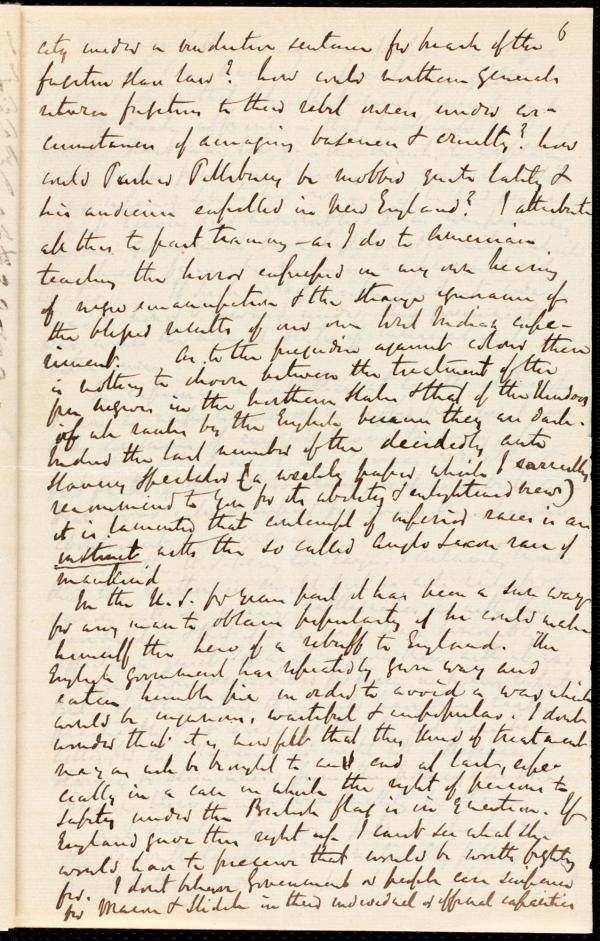 6
city under a vindictive sentence for breach of the
fugitive slave law? how could northern Generals
return fugitives to their rebel owners under cir-
cumstances of amazing baseness & cruelty? how
could Parker Pillsbury be mobbed quite lately &
his audience expelled in New England? I attribute
all this to past training - as I do to American
teaching the horror expressed in my own hearing
of negro emancipation & the strange ignorance of
the blessed results of our own West Indian expe-
riment. As to the prejudice against colour there
is nothing to choose between the treatment of the
free negroes in the northern States & that of the Hindoos
of all ranks by the English because they are dark.
Indeed the last number of the decidedly anti
slavery Spectator (a weekly paper which I
recommend to you for its ability & enlightened views)
it is lamented that contempt of inferior races is an
instinct with the so called Anglo Saxon race of
mankind
In the U.S. for years past it has been a sure way
for any man to obtain popularity if he could make
himself the hero of a rebuff to England. The
English Government has repeatedly given way and
eaten humble pie in order to avoid a war which
would be injurious, wasteful & unpopular. I dont
wonder that it is now felt that this kind of treatment
may as well be brought to an end at last, espe-
cially in a case in which the right of persons to
safety under the British flag is in question. If
England gave this right up I cant see what she
would have to preserve that would be worth fighting
for. I dont believe Government or people care
for Mason & Slidell in their individual or official capacities